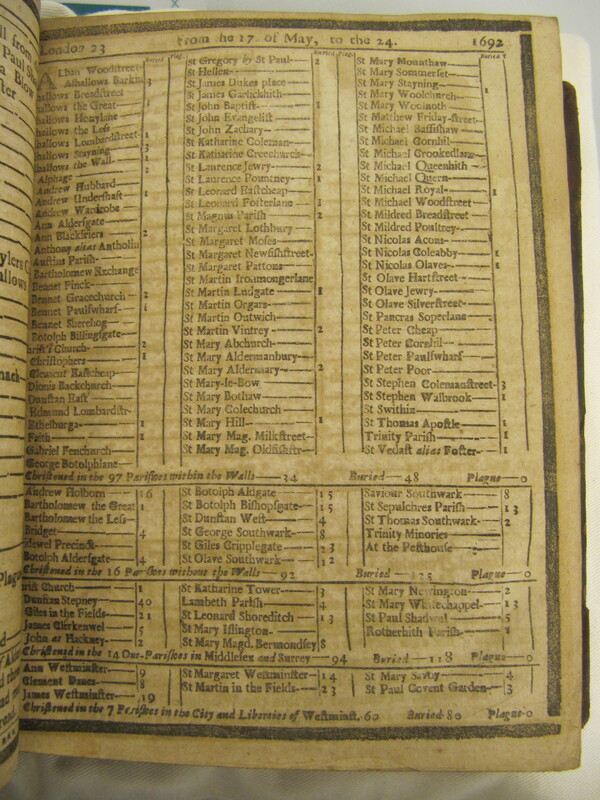 London 23 From the 17 of May, to the 24. 1692
Buried Plag.
Alban Woodstreet
Alhallows Barkin 3
hallows Breadstreet
hallows the Great 1
hallows Honylane
hallows the Less
hallows Lombardstreet 1
hallows Stayning 3
hallows the Wall 2
Alphage
Andrew Hubbard
Andrew Undershaft 1
Andrew Wardrobe
Ann Aldersgate
Ann Blackfriers 2
Anthony alias Antholin
Austins Parish
Bartholomew Exchange
Bennet Finck
Bennet Gracechurch 2
Bennet Paulswharf 1
Bennet Sherehog
Botolph Billingsgate
hrist's Church 2
Christophers 1
Clement Eastcheap
Dionis Backchurch
Dunstan East
Edmund Lombardstr-
Ethelburga 1
Faith 1
Gabriel Fenchurch
George Botolphlane
Buried Plag.
St Gregory by St Paul 2
St Hellen
St James Dukes place
St James Garlickhith
St John Baptist 1
St John Evangelist
St John Zachary
St Katharine Coleman
St Katharine Creechurch
St Laurence Jewry 2
St Laurence Pountney 1
St Leonard Eastcheap
St Leonard Fosterlane
St Magnus Parish
St Margaret Lothbury
St Margaret Moses
St Margaret Newfishstreet
St Margaret Pattons
St Martin Ironmongerlane
St Martin Ludgate 1
St Martin Orgars
St Martin Outwich
St Martin Vintrey 2
St Mary Abchurch
St Mary Aldermanbury
St Mary Aldermary 2
St Mary-le-Bow
St Mary Bothaw
St Mary Colechurch
St Mary Hill 1
St Mary Mag. Milkstreet
St Mary Mag. Oldfishstr
Buried
St Mary Mounthaw
St Mary Sommerset
St Mary Stayning
St Mary Woolchurch
St Mary Woolnoth
St Matthew Friday-street
St Michael Bassishaw
St Michael Cornhil
St Michael Crookedlane
St Michael Queenhith
St Michael Quern
St Michael Royal
St Michael Woodstreet
St Mildred Breadstreet
St Mildred Poultrey
St Nicolas Acons
St Nicolas Coleabby 1
St Nicolas Olaves 1
St Olave Hartstreet
St Olave Jewry
St Olave Silverstreet
St Pancras Soperlane
St Peter Cheap
St Peter Cornhil
St Peter Paulswharf
St Peter Poor
St Stephen Colemanstreet 3
St Stephen Walbrook 1
St Swithin
St Thomas Apostle 1
Trinity Parish 1
St Vedast alias Foster 1
Christened in the 97 Parishes within the Walls 34 Buried 48 Plague 0
Andrew Holborn 16
Bartholomew the Great 1
Bartholomew the Less
Bridget 4
Bridewel Precinct
Botolph Aldersgate 4
St Botolph Aldgate 15
St Botolph Bishopsgate 15
St Dunstan West 4
St George Southwark 8
St Giles Cripplegate 23
St Olave Southwark 12
Saviour Southwark 8
St Sepulchres Parish 13
St Thomas Southwark 2
Trinity Minories
At the Pesthouse
Christened in the 16 Parishes without the Walls 92 Buried 125 Plague 0
rist Church 1
Dunstan Stepney 40
Giles in the Fields 21
James Clerkenwel 5
John at Hackney 2
St Katharine Tower 3
Lambeth Parish 4
St Leonard Shoreditch 13
St Mary Islington
St Mary Magd. Bermondsey 8
St Mary Newington 2
St Mary Whitechappel 13
St Paul Shadwel 5
Rotherhith Parish 1
Christened in the 14 Out-Parishes in Middlesex and Surrey 94 Buried 118 Plague 0
Ann Westminster 9
Clement Danes 8
James Westminster 19
St Margaret Westminster 14
St Martin in the Fields 23
St Mary Savoy 4
St Paul Covent Garden 3
Christened in the 7 Parishes in the City and Liberties of Westminst. 60 Buried 80 Plague 0